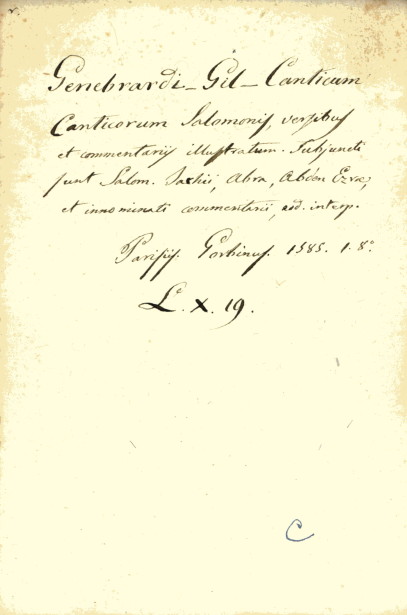 Genebrardi - Gil - Canticum
Canticorum Salomonis, versibus
et commentariis illustratum. Subjuncti
sunt Salom. Jarhii, Abra, Aben Ezræ,
et innominati commentarii, eod. interp.
Parisiis. Gorbinus. 1585. 1. 8º.
L. X. 19.
C